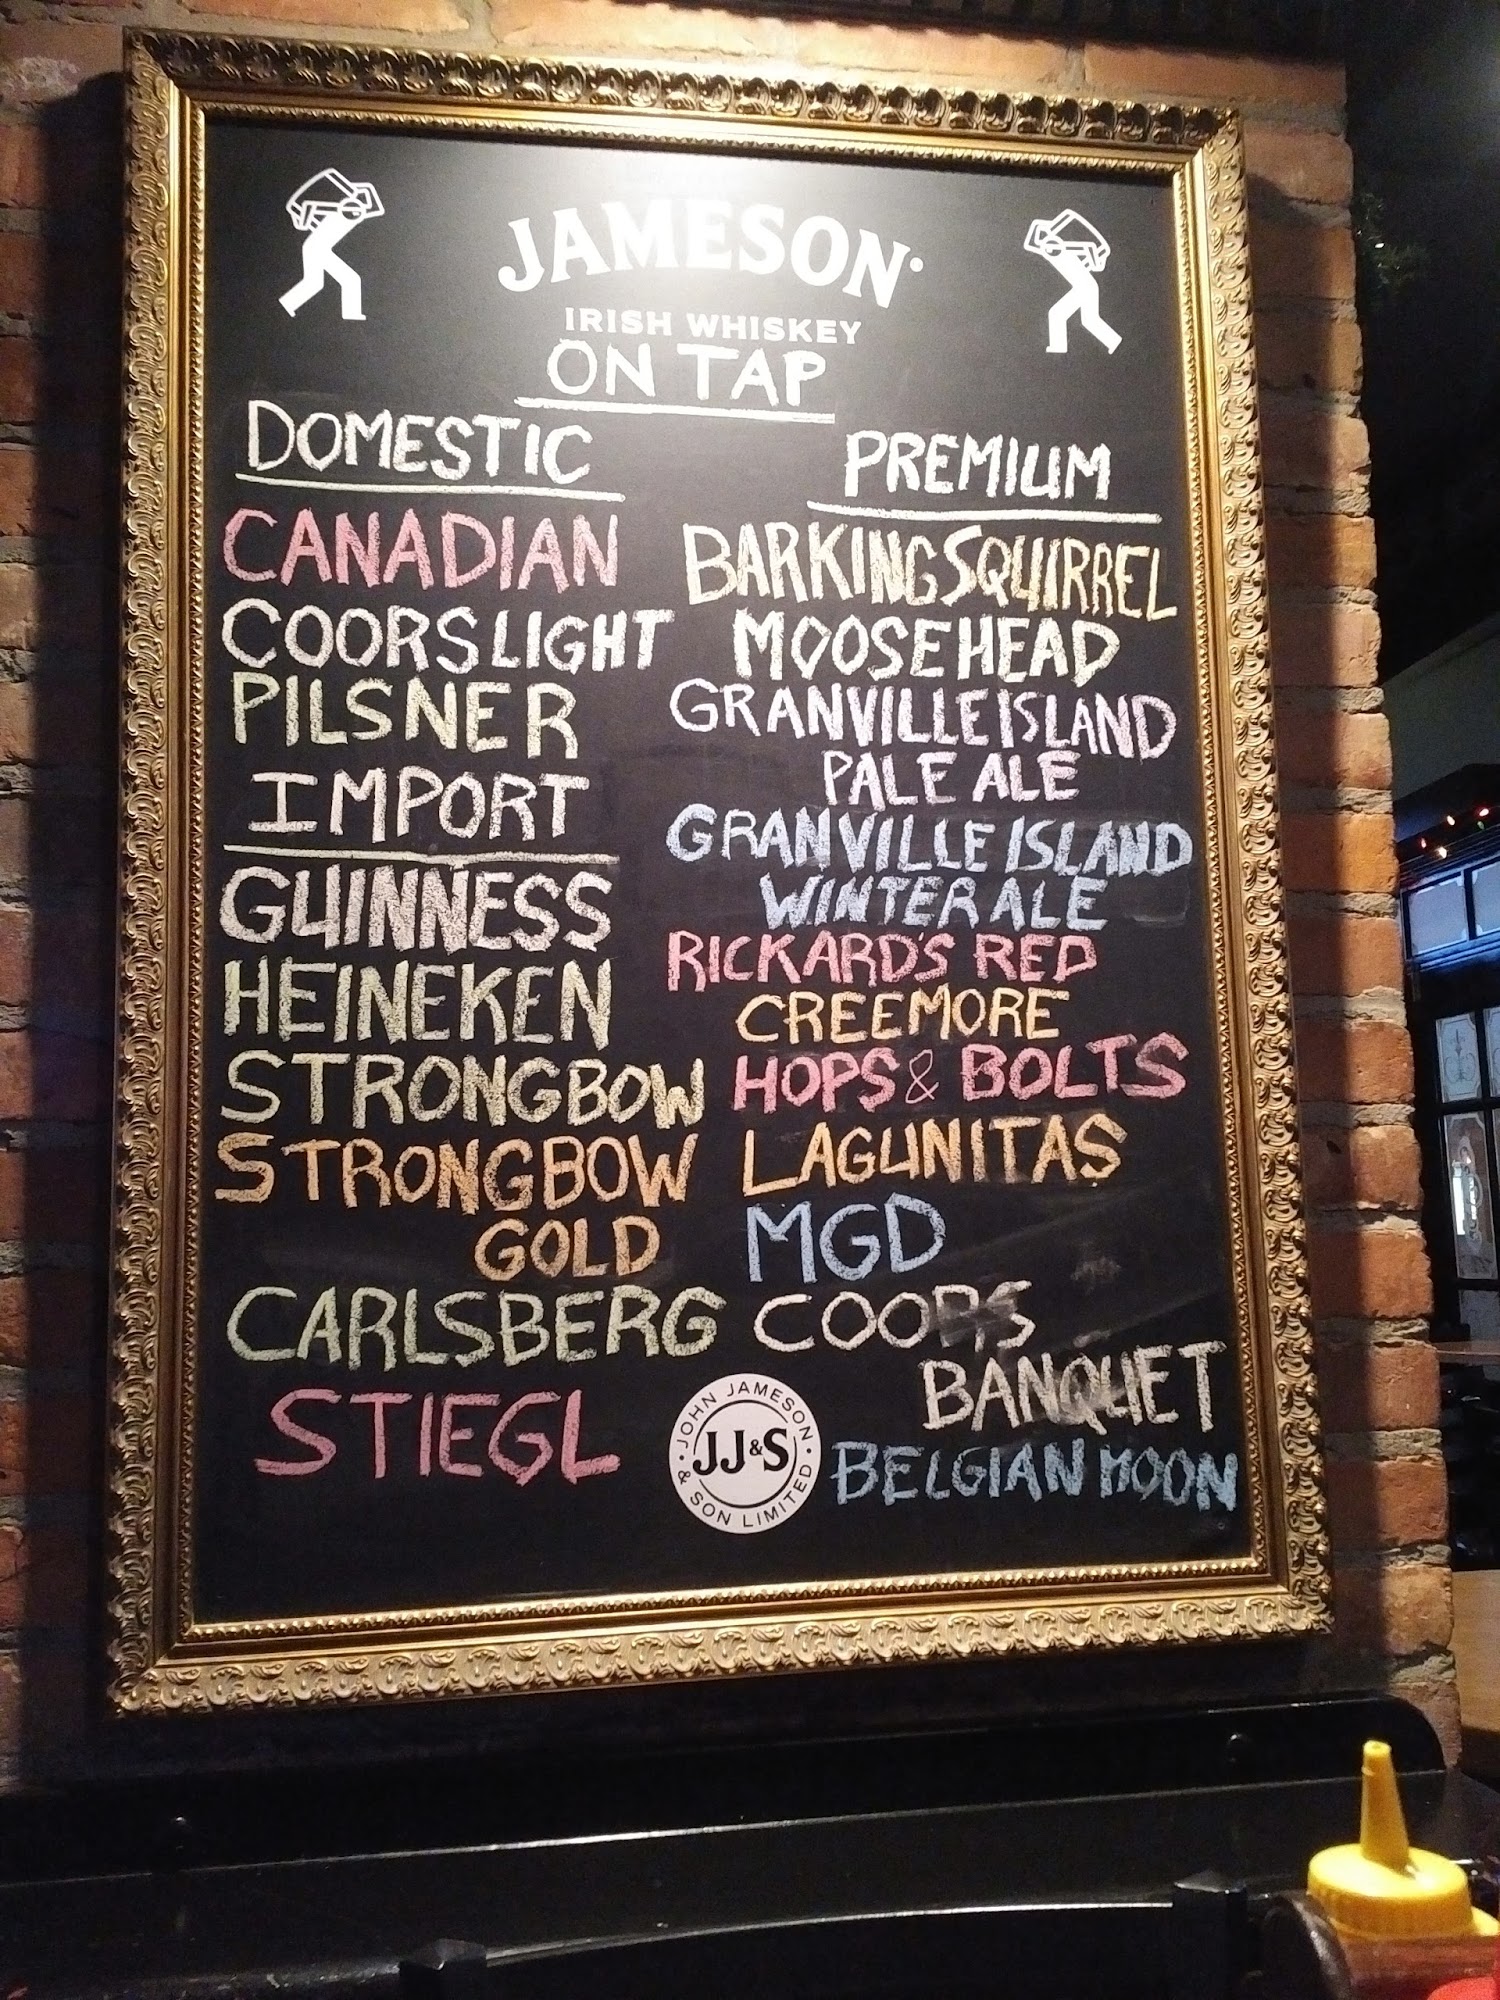 JAMESON.
IRISH WHISKEY
ON TAP
DOMESTIC
CANADIAN
COORS LIGHT
PILSNER
IMPORT
GUINNESS
HEINEKEN
STRONGBOW
STRONGBOW
GOLD
CARLSBERG
STIEGL
PREMIUM
BARKING SQUIRREL
MOOSEHEAD
GRANVILLE ISLAND
PALE ALE
GRANVILLE ISLAND
WINTER ALE
RICKARD'S RED
CREEMORE
HOPS & BOLTS
LAGUNITAS
MGD
COORS
BANQUET
BELGIAN MOON
JOHN JAMESON
JJ&S
& SON LIMITED